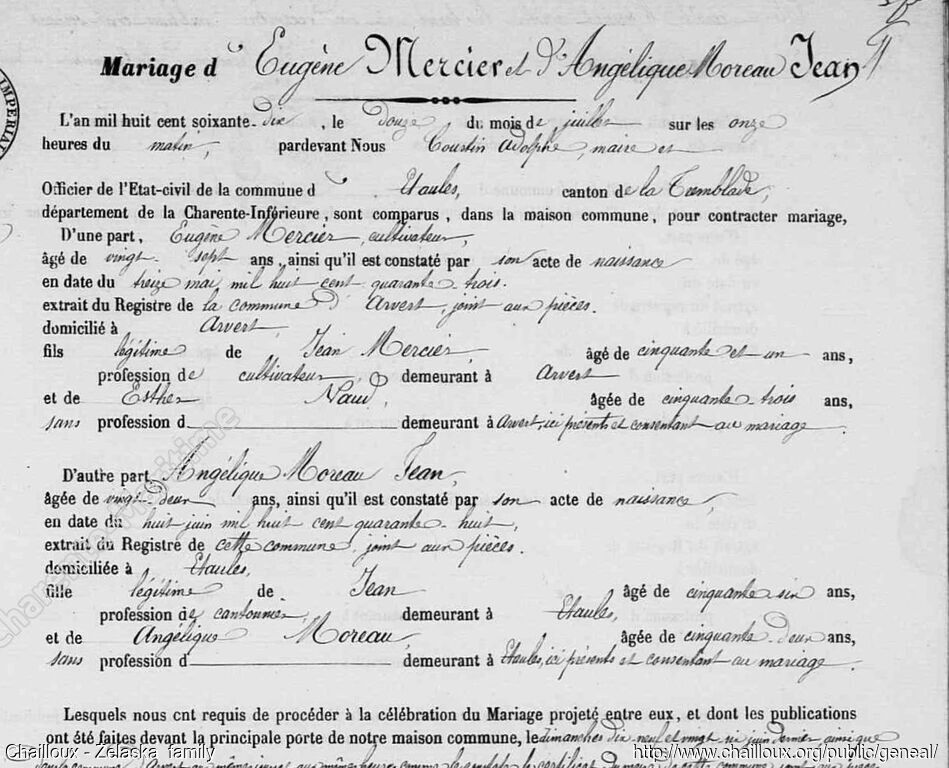 Mariage d' Eugène Mercier et d'Angélique Moreau Jean
IMPERIAL
L'an mil huit cent soixante-dix, le douze du mois de juillet sur les onze
heures du matin, pardevant Nous Courtin Adolphe, maire et
Officier de l'Etat-civil de la commune d' Etaules, canton de la Tremblade,
département de la Charente-Inférieure, sont comparus, dans la maison commune, pour contracter mariage,
D'une part, Eugène Mercier, cultivateur,
âgé de vingt-sept ans, ainsi qu'il est constaté par son acte de naissance
en date du treize mai mil huit cent quarante-trois.
extrait du Registre de la commune d'Arvert, joint aux pièces.
domicilié à Arvert,
fils légitime de Jean Mercier, âgé de cinquante et un ans,
profession de cultivateur, demeurant à Arvert
et de Esther Naud, âgée de cinquante-trois ans,
sans profession d demeurant à Arvert, ici présents et consentant au mariage.
D'autre part, Angélique Moreau Jean,
âgée de vingt-deux ans, ainsi qu'il est constaté par son acte de naissance,
en date du huit juin mil huit cent quarante-huit,
extrait du Registre de cette commune, joint aux pièces.
domiciliée à Etaules,
fille légitime de Jean âgé de cinquante-six ans,
profession de cantonnier, demeurant à Etaules,
et de Angélique Moreau, âgée de cinquante-deux ans,
sans profession d demeurant à Etaules, ici présents et consentant au mariage.
Lesquels nous ont requis de procéder à la célébration du Mariage projeté entre eux, et dont les publications
ont été faites devant la principale porte de notre maison commune, le dimanches dix neuf et vingt six juin dernier ainsi que
Chailloux - Zelaska family
http://www.chailloux.org/public/geneal/
charente-maritime